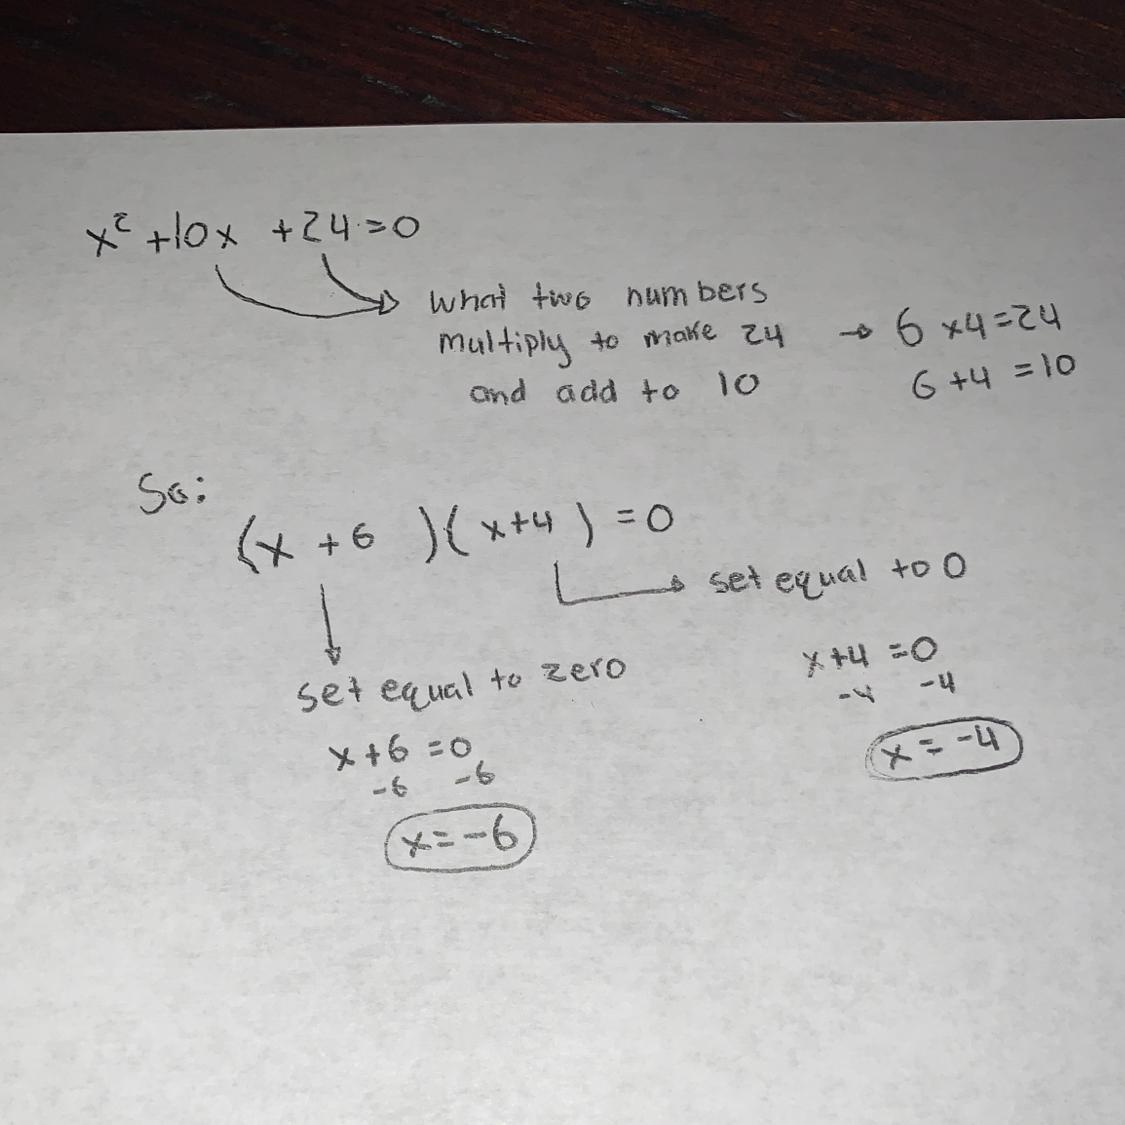 x² +10x +24=0
what two numbers
multiply to make 24 → 6 x4=24
and add to 10 6+4 =10
So:
(x +6 )(x+4) =0
set equal to 0
set equal to zero
x+4 =0
-4 -4
x = -4
x+6 =0
-6 -6
x= -6